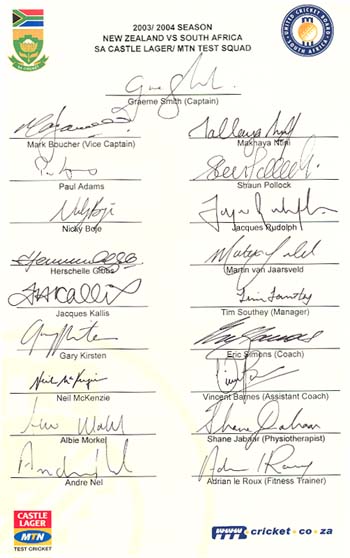 2003/ 2004 SEASON
NEW ZEALAND VS SOUTH AFRICA
SA CASTLE LAGER/ MTN TEST SQUAD
UNITED CRICKET BOARD
SOUTH AFRICA
SA CRICKET
Graeme Smith (Captain)
Mark Boucher (Vice Captain)
Makhaya Ntini
Paul Adams
Shaun Pollock
Nicky Boje
Jacques Rudolph
Herschelle Gibbs
Martin van Jaarsveld
Jacques Kallis
Tim Southey (Manager)
Gary Kirsten
Eric Simons (Coach)
Neil McKenzie
Vincent Barnes (Assistant Coach)
Albie Morkel
Shane Jabaar (Physiotherapist)
Andre Nel
Adrian le Roux (Fitness Trainer)
CASTLE
LAGER
MTN
TEST CRICKET
cricket.co.za